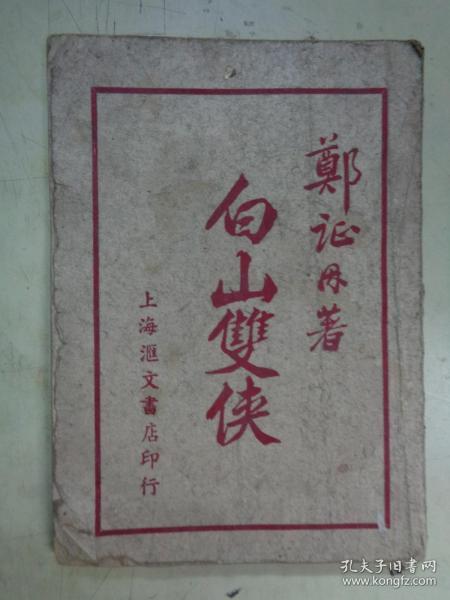 鄭证因著
白山雙侠
上海滙文書店印行
孔夫子旧书网
www.kongfz.com